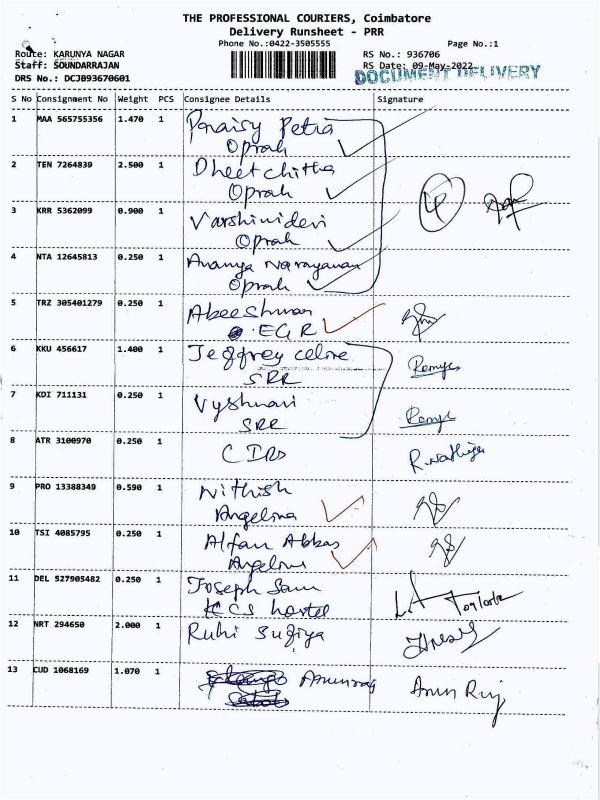 THE PROFESSIONAL COURIERS, Coimbatore
Delivery Runsheet - PRR
Phone No.:0422-3505555
Page No.:1
Route: KARUNYA NAGAR
RS No.: 936706
Staff: SOUNDARRAJAN
RS Date: 09-May-2022
DRS No.: DCJB93670601
DOCUMENT DELIVERY
S No Consignment No Weight PCS Consignee Details Signature
1 MAA 565755356 1.470 1 Petria
Oprah
2 TEN 7264839 2.500 1 Dheetchitha
Oprah
3 KRR 5362099 0.900 1 Varshinidevi
Oprah
4 NTA 12645813 0.250 1 Ananya Narayanan
Oprah
5 TRZ 305401279 0.250 1 Abeeshwar
EGR
6 KKU 456617 1.400 1 Jeffrey celine
SRR
7 KDI 711131 0.250 1 Vyshnavi
SRR
8 ATR 3100970 0.250 1
9 PRO 13388349 0.590 1 Nithish
Angelina
10 TSI 4085795 0.250 1 Alfan Abbas
Angelina
11 DEL 527905482 0.250 1 Joseph Sam
KCS hostel
12 NRT 294650 2.000 1 Ruhi Sufiya
13 CUD 1068169 1.070 1 Arunraj Arun Raj